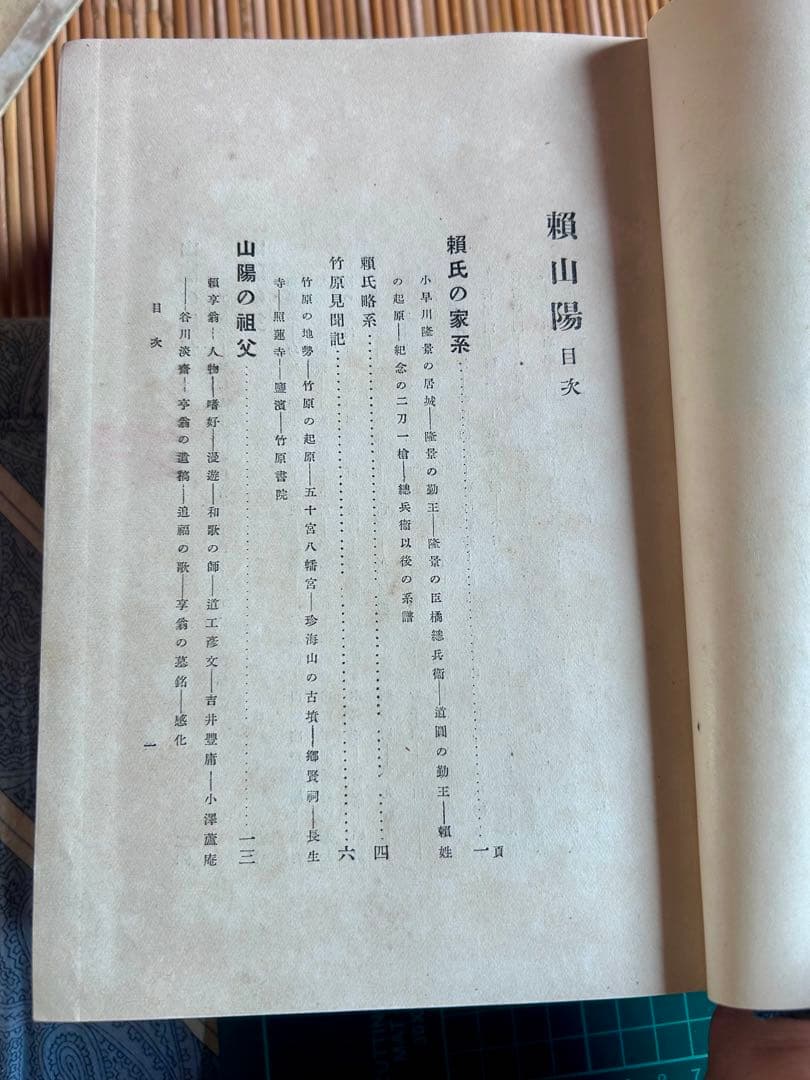 賴山陽目次
頁
賴氏の家系……一
小早川隆景の居城——隆景の勤王——隆景の臣橋總兵衞——道圓の勤王——賴姓
の起原——紀念の二刀一槍——總兵衞以後の系譜
賴氏略系……四
竹原見聞記……六
竹原の地勢——竹原の起原——五十宮八幡宮——珍海山の古墳——鄕賢祠——長生
寺——照蓮寺——鹽濱——竹原書院
山陽の祖父……一三
賴享翁——人物——嗜好——漫遊——和歌の師——道工彥文——吉井豐庸——小澤蘆庵
——谷川淡齋——享翁の遺稿——追福の歌——享翁の墓銘——感化
目次
一
CUTTING
MAT